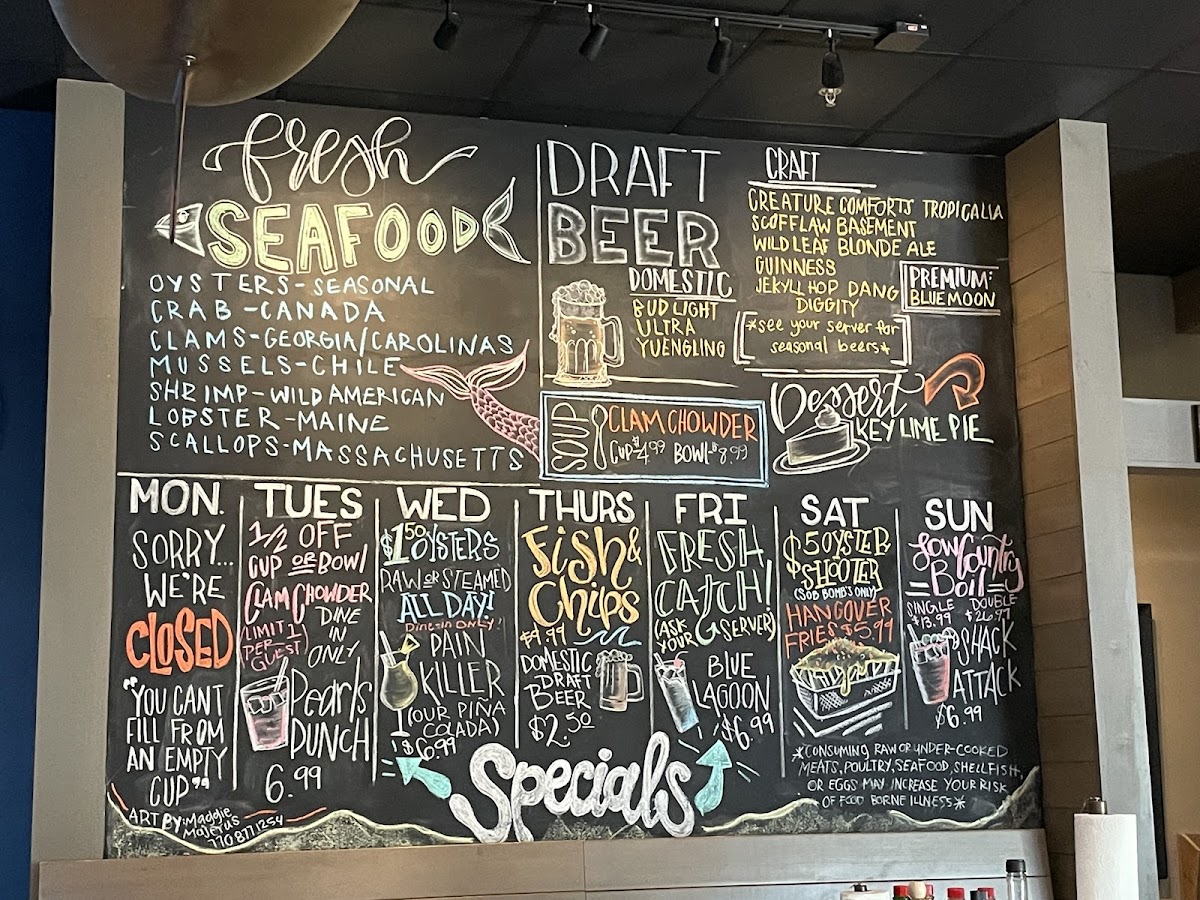 fresh
SEAFOOD
OYSTERS-SEASONAL
CRAB-CANADA
CLAMS-GEORGIA/CAROLINAS
MUSSELS-CHILE
SHRIMP-WILD AMERICAN
LOBSTER-MAINE
SCALLOPS-MASSACHUSETTS
DRAFT
BEER
DOMESTIC
BUD LIGHT
ULTRA
YUENGLING
CRAFT
CREATURE COMFORTS TROPICALIA
SCOFFLAW BASEMENT
WILD LEAF BLONDE ALE
GUINNESS
JEKYLL HOP DANG
DIGGITY
PREMIUM:
BLUE MOON
*see your server for
seasonal beers*
SOUP
CLAM CHOWDER
CUP-$4.99 BOWL-$8.99
Dessert
KEY LIME PIE
MON.
SORRY...
WE'RE
CLOSED
"YOU CANT
FILL FROM
AN EMPTY
CUP"
TUES
1/2 OFF
CUP OR BOWL
CLAM CHOWDER
LIMIT 1
PER
GUEST
DINE
IN
ONLY
Pearls
PUNCH
6.99
WED
$1.50 OYSTERS
RAW OR STEAMED
ALL DAY!
Dine in ONLY!
PAIN
KILLER
(OUR PIÑA
COLADA)
$6.99
THURS
Fish &
Chips
$9.99
DOMESTIC
DRAFT
BEER
$2.50
FRI
FRESH
CATCH!
(ASK
YOUR SERVER)
BLUE
LAGOON
$6.99
SAT
$5 OYSTER
SHOOTER
(SOB BOMB'S ONLY)
HANGOVER
FRIES $5.99
SUN
Low Country
Boil
SINGLE DOUBLE
$13.99 $26.97
SHACK
ATTACK
$6.99
Specials
*CONSUMING RAW OR UNDER-COOKED
MEATS, POULTRY, SEAFOOD, SHELLFISH,
OR EGGS MAY INCREASE YOUR RISK
OF FOOD BORNE ILLNESS*
ART BY: Maddie
Majerus
770 877 1254